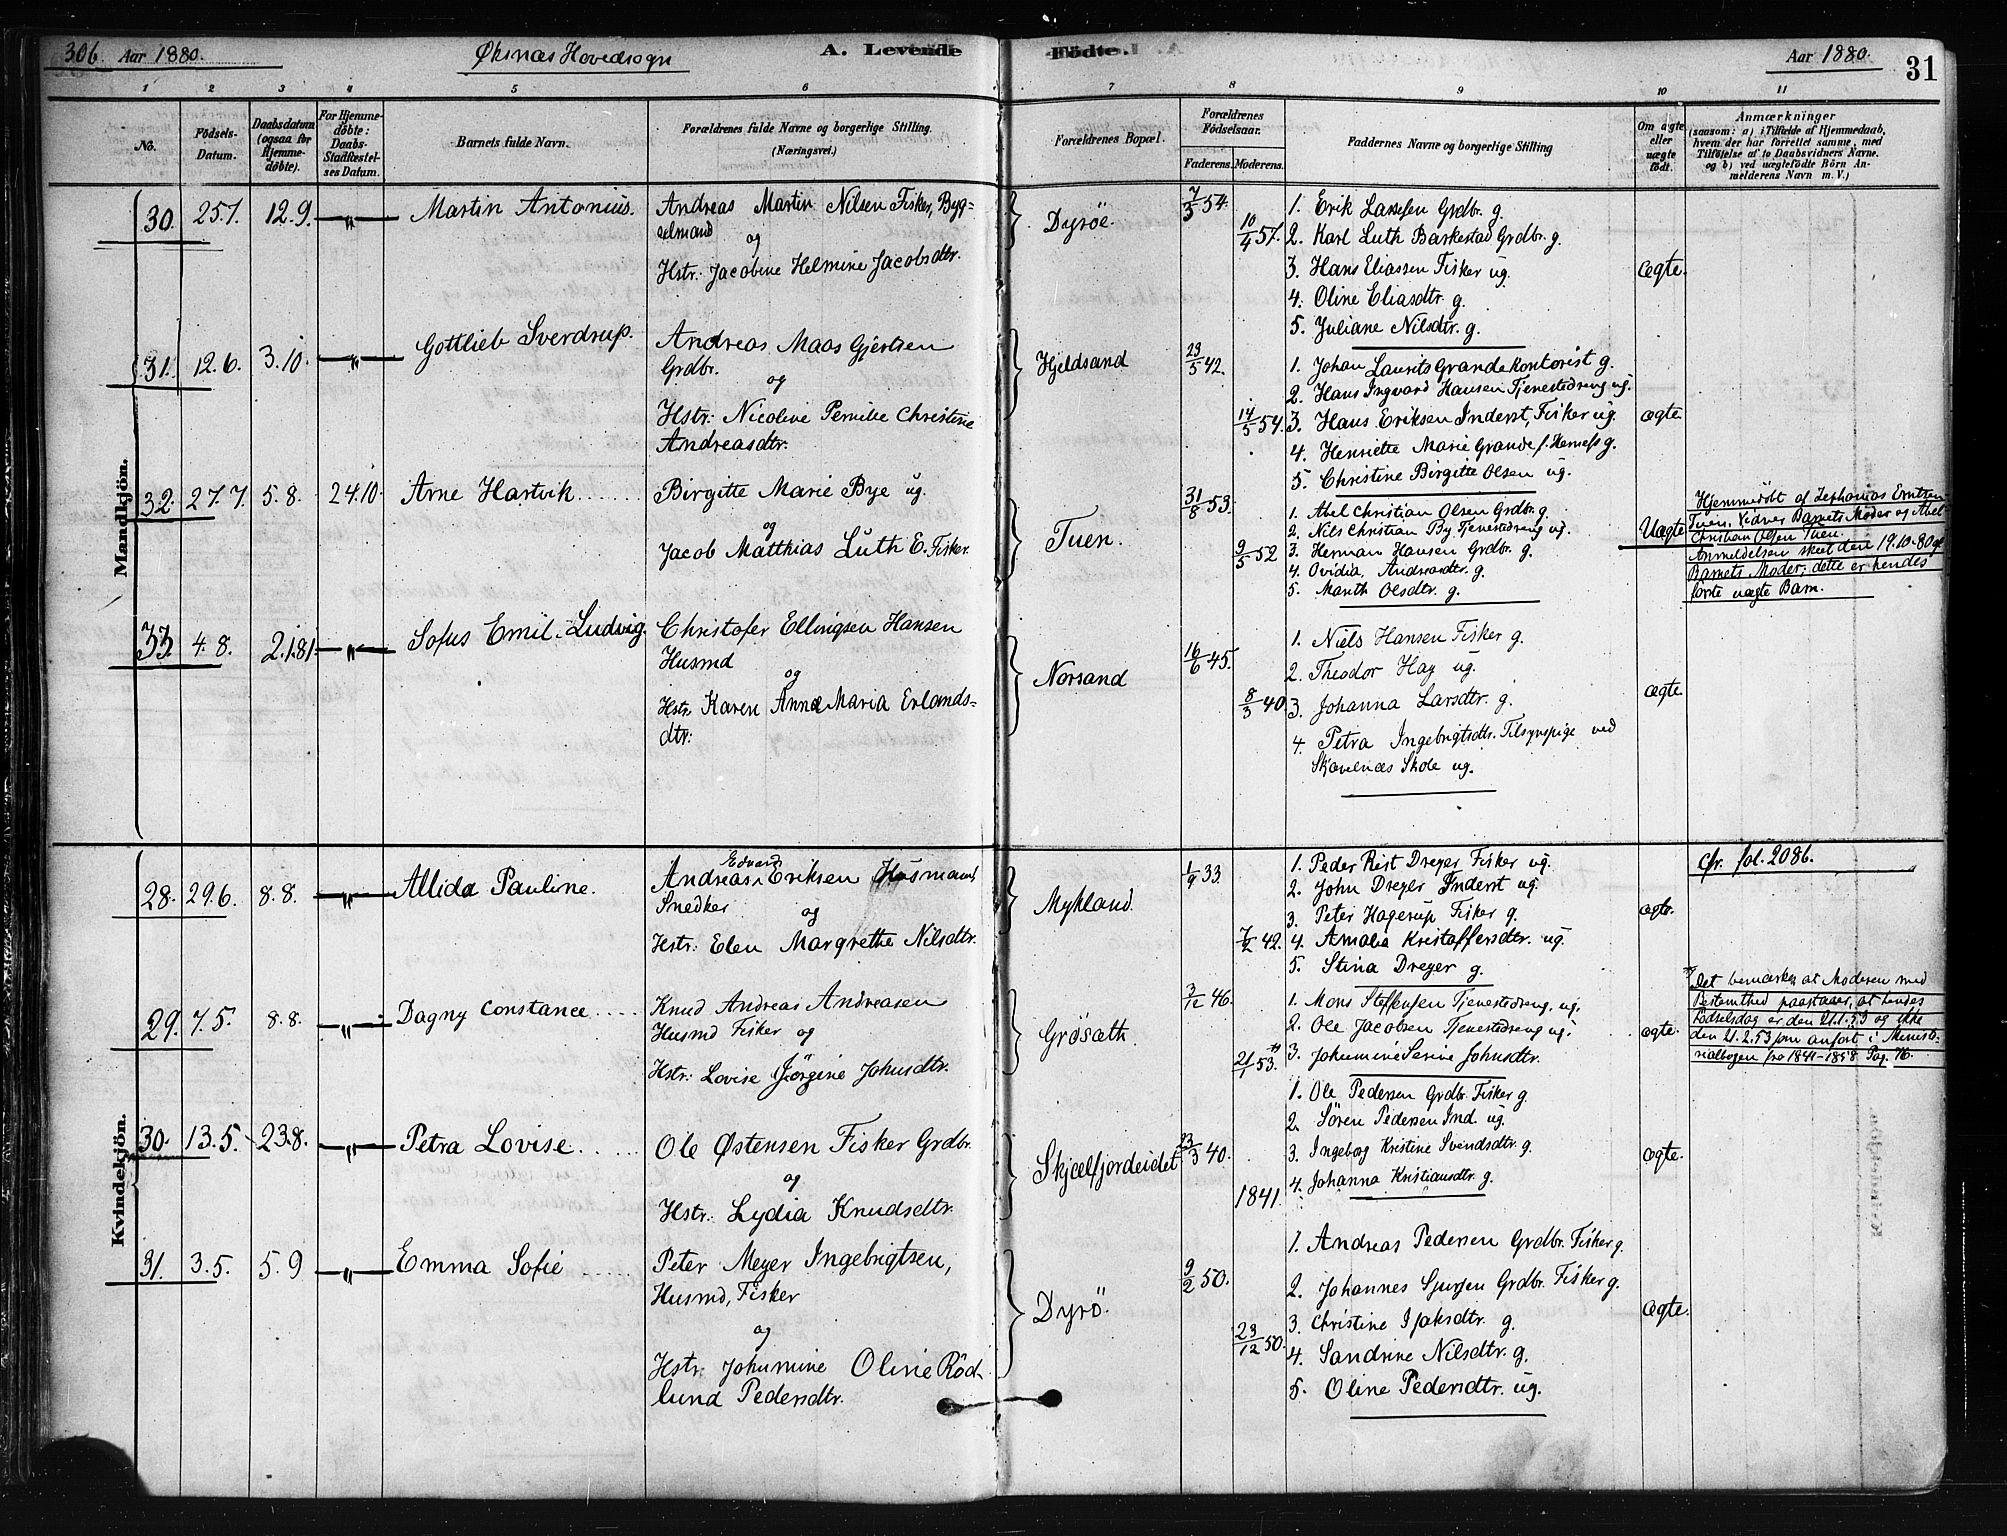 306 Aar 1880. Øksnæs Hovedsogn A. Levende Fødte. Aar 1880. 31
1 2 3 4 5 6 7 8 9 10 11
No. Fødsels-Datum. Daabsdatum (ogsaa for Hjemmedøbte). For Hjemmedøbte: Daabs-Stadfæstelses Datum. Barnets fulde Navn. Forældrenes fulde Navne og borgerlige Stilling. (Næringsvei.) Forældrenes Bopæl. Forældrenes Fødselsaar. Faderens. Moderens. Faddernes Navne og borgerlige Stilling Om ægte eller uægte født.
Anmærkninger
(saasom: a) i Tilfælde af Hjemmedaab,
hvem der har forrettet samme, med
Tilføielse af to Daabsvidners Navne.
og b) ved uægtefødte Børn An-
melderens Navn m. V.)
Mandkjön.
30. 25.7. 12.9. —"— Martin Antonius.
Andreas Martin Nilsen Fisker, Byg=
selmand
og
Hstr: Jacobine Helmine Jacobsdtr.
Dyrøe.
7/3 54.
10/4 57.
1. Erik Lassesen Grdbr. g.
2. Karl Luth Barkestad Grdbr. g.
3. Hans Eliassen Fisker ug.
4. Oline Eliasdtr. g.
5. Juliane Nilsdtr. g.
ægte.
31. 12.6. 3.10. —"— Gottlieb Sverdrup.
Andreas Maas Gjertsen
Grdbr.
og
Hstr: Nicoline Pernille Christine
Andreasdtr.
Hjeldsand
29/5 42.
14/5 54.
1. Johan Laurits Grande Kontorist g.
2. Hans Ingvard Hansen Tjenestedreng ug.
3. Hans Eriksen Inderst, Fisker ug.
4. Henriette Marie Grande f. g.
5. Christine Birgitte Olsen ug.
ægte
32. 27.7. 5.8. 24.10. Arne Hartvik.......
Birgitte Marie Bye ug.
og
Jacob Matthias Luth E. Fisker
Tuen.
31/8 53.
9/5 52
1. Abel Christian Olsen Grdbr. g.
2. Nils Christian By Tjenestedreng ug.
3. Herman Hansen Grdbr. g.
4. Ovidia Andreasdtr. g.
5. Marith Olsdtr. g.
Uægte
Hjemmedøbt af Zephanias Erntsen
Tuen. Vidner Barnets Moder og Abel
Christian Olsen Tuen.
Anmeldelsen skeet den 19.10.80 af
Barnets Moder; dette er hendes
første uægte Barn.
33. 4.8. 2.1.81. —"— Sofus Emil Ludvig.
Christofer Ellingsen Hansen
Husmd
og
Hstr. Karen Anna Maria Erlands=
dtr:
Norsand
16/6 45.
8/3 40
1. Niels Hansen Fisker g.
2. Theodor Hay ug.
3. Johanna Larsdtr. g.
4. Petra Ingebrigtsdtr. Tilsynspige ved
Skavlnæs Skole ug.
ægte
Kvindekjön.
28. 29.6. 8.8. —"— Allida Pauline.
Edvard
Andreas Eriksen Husmand
Snedker
og
Hstr: Elen Margrethe Nilsdtr.
Mykland.
1/9 33.
7/2 42.
1. Peder Rist Dreyer Fisker ug.
2. John Dreyer Inderst ug.
3. Peter Hagerup Fisker g.
4. Amalie Kristoffersdtr. ug.
5. Stina Dreyer g.
ægte.
Cfr. fol. 2086.
29. 7.5. 8.8. —"— Dagny Constance.....
Knud Andreas Andreasen
Husmd Fisker og
Hstr: Lovise Jörgine Johnsdtr.
Grøsæth.
3/12 46.
21/1 53.
1. Mons Steffensen Tjenestedreng, ug.
2. Ole Jacobsen Tjenestedreng ug.
3. Johanmine Serine Johnsdtr.
ægte
Det bemærkes at Moderen med
Bestemthed paastaar, at hendes
Födselsdag er den 21.1.53 og ikke
den 21.2.53 som anført i Ministe-
rialbogen fra 1841-1858 Pag. 76.
30. 13.5. 23.8. —"— Petra Lovise.....
Ole Østensen Fisker Grdbr.
og
Hstr: Lydia Knudsdtr.
Skjælfjordeidet
23/3 40.
1841.
1. Ole Pedersen Grdbr. Fisker g.
2. Sören Pedersen Ind. ug.
3. Ingeborg Kristine Svendsdtr. g.
4. Johanna Kristiansdtr. g.
ægte.
31. 3.5. 5.9 —"— Emma Sofie.....
Peter Meyer Ingebrigtsen,
Husmd, Fisker
og
Hstr: Johanmine Oline Röd-
lund Pedersdtr.
Dyrö.
9/2 50.
29/12 50.
1. Andreas Pedersen Grdbr. Fisker g.
2. Johannes Sjursen Grdbr. Fisker g.
3. Christine Isaksdtr. g.
4. Sandrine Nilsdtr. g.
5. Oline Pedersdtr. ug.
ægte.